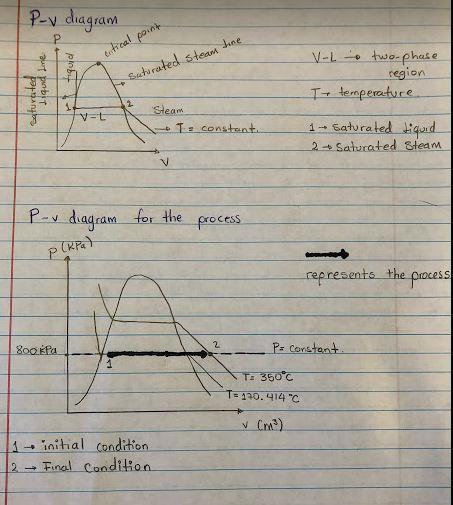 P-v diagram
P
critical point
Saturated Steam line
Saturated
liquid line
liquid
1
2
V-L
Steam
T = constant.
v
V-L → two-phase
region
T → temperature
1 → Saturated liquid
2 → Saturated Steam
P-v diagram for the process
P (KPa)
represents the process
800 KPa
1
2
P= constant.
T= 350°C
T= 170.414 °C
v (m³)
1 → initial condition
2 → Final Condition